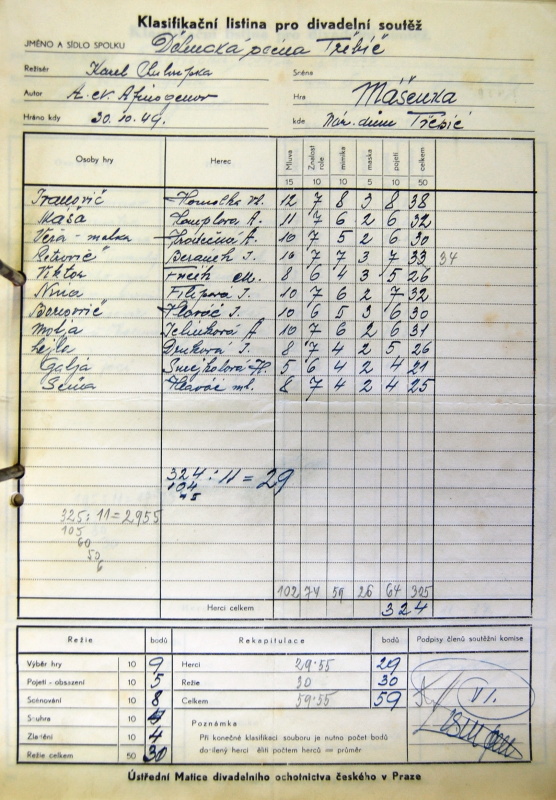 Klasifikační listina pro divadelní soutěž
JMÉNO A SÍDLO SPOLKU Dělnická scéna Třebíč
Režisér Karel Chlupka Scéna
Autor A. N. Afinogenov Hra Mášenka
Hráno kdy 30.10.49. kde Nár. dům Třebíč
Osoby hry Herec Mluva Znalost role mimika maska pojetí celkem
15 10 10 5 10 50
Ivanovič Homolka 12 7 8 3 8 38
Máša A. 11 7 6 2 6 32
Věra - matka A. 10 7 5 2 6 30
Petrovič Beránek J. 10 7 7 3 7 33 34
Viktor M. 8 6 4 3 5 26
Nina Filipová J. 10 7 6 2 7 32
Borovič Hlaváč J. 10 6 5 3 6 30
Motja Jelínková A. 10 7 6 2 6 31
Lejla J. 8 7 4 2 5 26
Galja Smejkalová H. 5 6 4 2 4 21
Seňa Hlaváč ml. 8 7 4 2 4 25
324 : 11 = 29
104
325 : 11 = 2955
105
60
50
6
102 74 59 26 64 325
Herci celkem 324
Režie bodů Rekapitulace bodů Podpisy členů soutěžní komise
Výběr hry 10 9 Herci 29·55 29
Pojetí - obsazení 10 5 Režie 30 30
Scénování 10 8 Celkem 59·55 59
Souhra 10 4
Zladění 10 4 Poznámka
Režie celkem 50 30 Při konečné klasifikaci souboru je nutno počet bodů docílený herci děliti počtem herců = průměr
Ústřední Matice divadelního ochotnictva českého v Praze